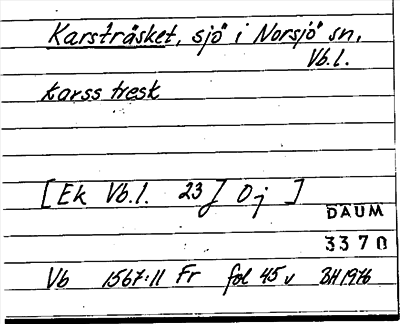 Karsträsket, sjö i Norsjö sn,
Vb.l.
karss tresk
[Ek Vb.l. 23J Oj ]
DAUM
3370
Vb 1567:11 Fr fol 45v BH 1976